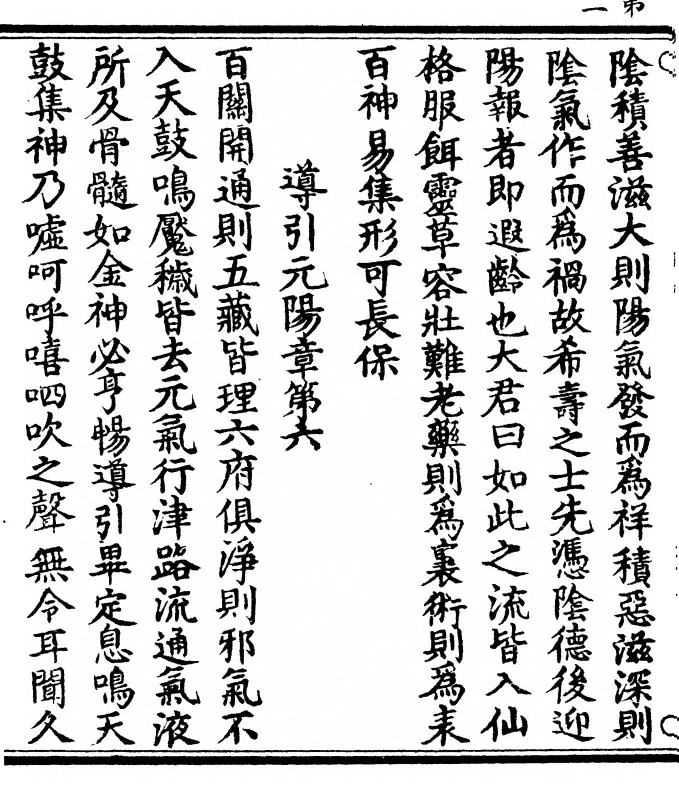 第一
陰積善滋大則陽氣發而爲祥積惡滋深則
陰氣作而爲禍故希壽之士先憑陰德後迎
陽報者即遐齡也大君曰如此之流皆入仙
格服餌靈草容壯難老藥則爲裏術則爲表
百神易集形可長保
導引元陽章第六
百關開通則五藏皆理六府俱淨則邪氣不
入天鼓鳴魘穢皆去元氣行津路流通氣液
所及骨髓如金神必亨暢導引畢定息鳴天
鼓集神乃噓呵呼嘻呬吹之聲無令耳聞久